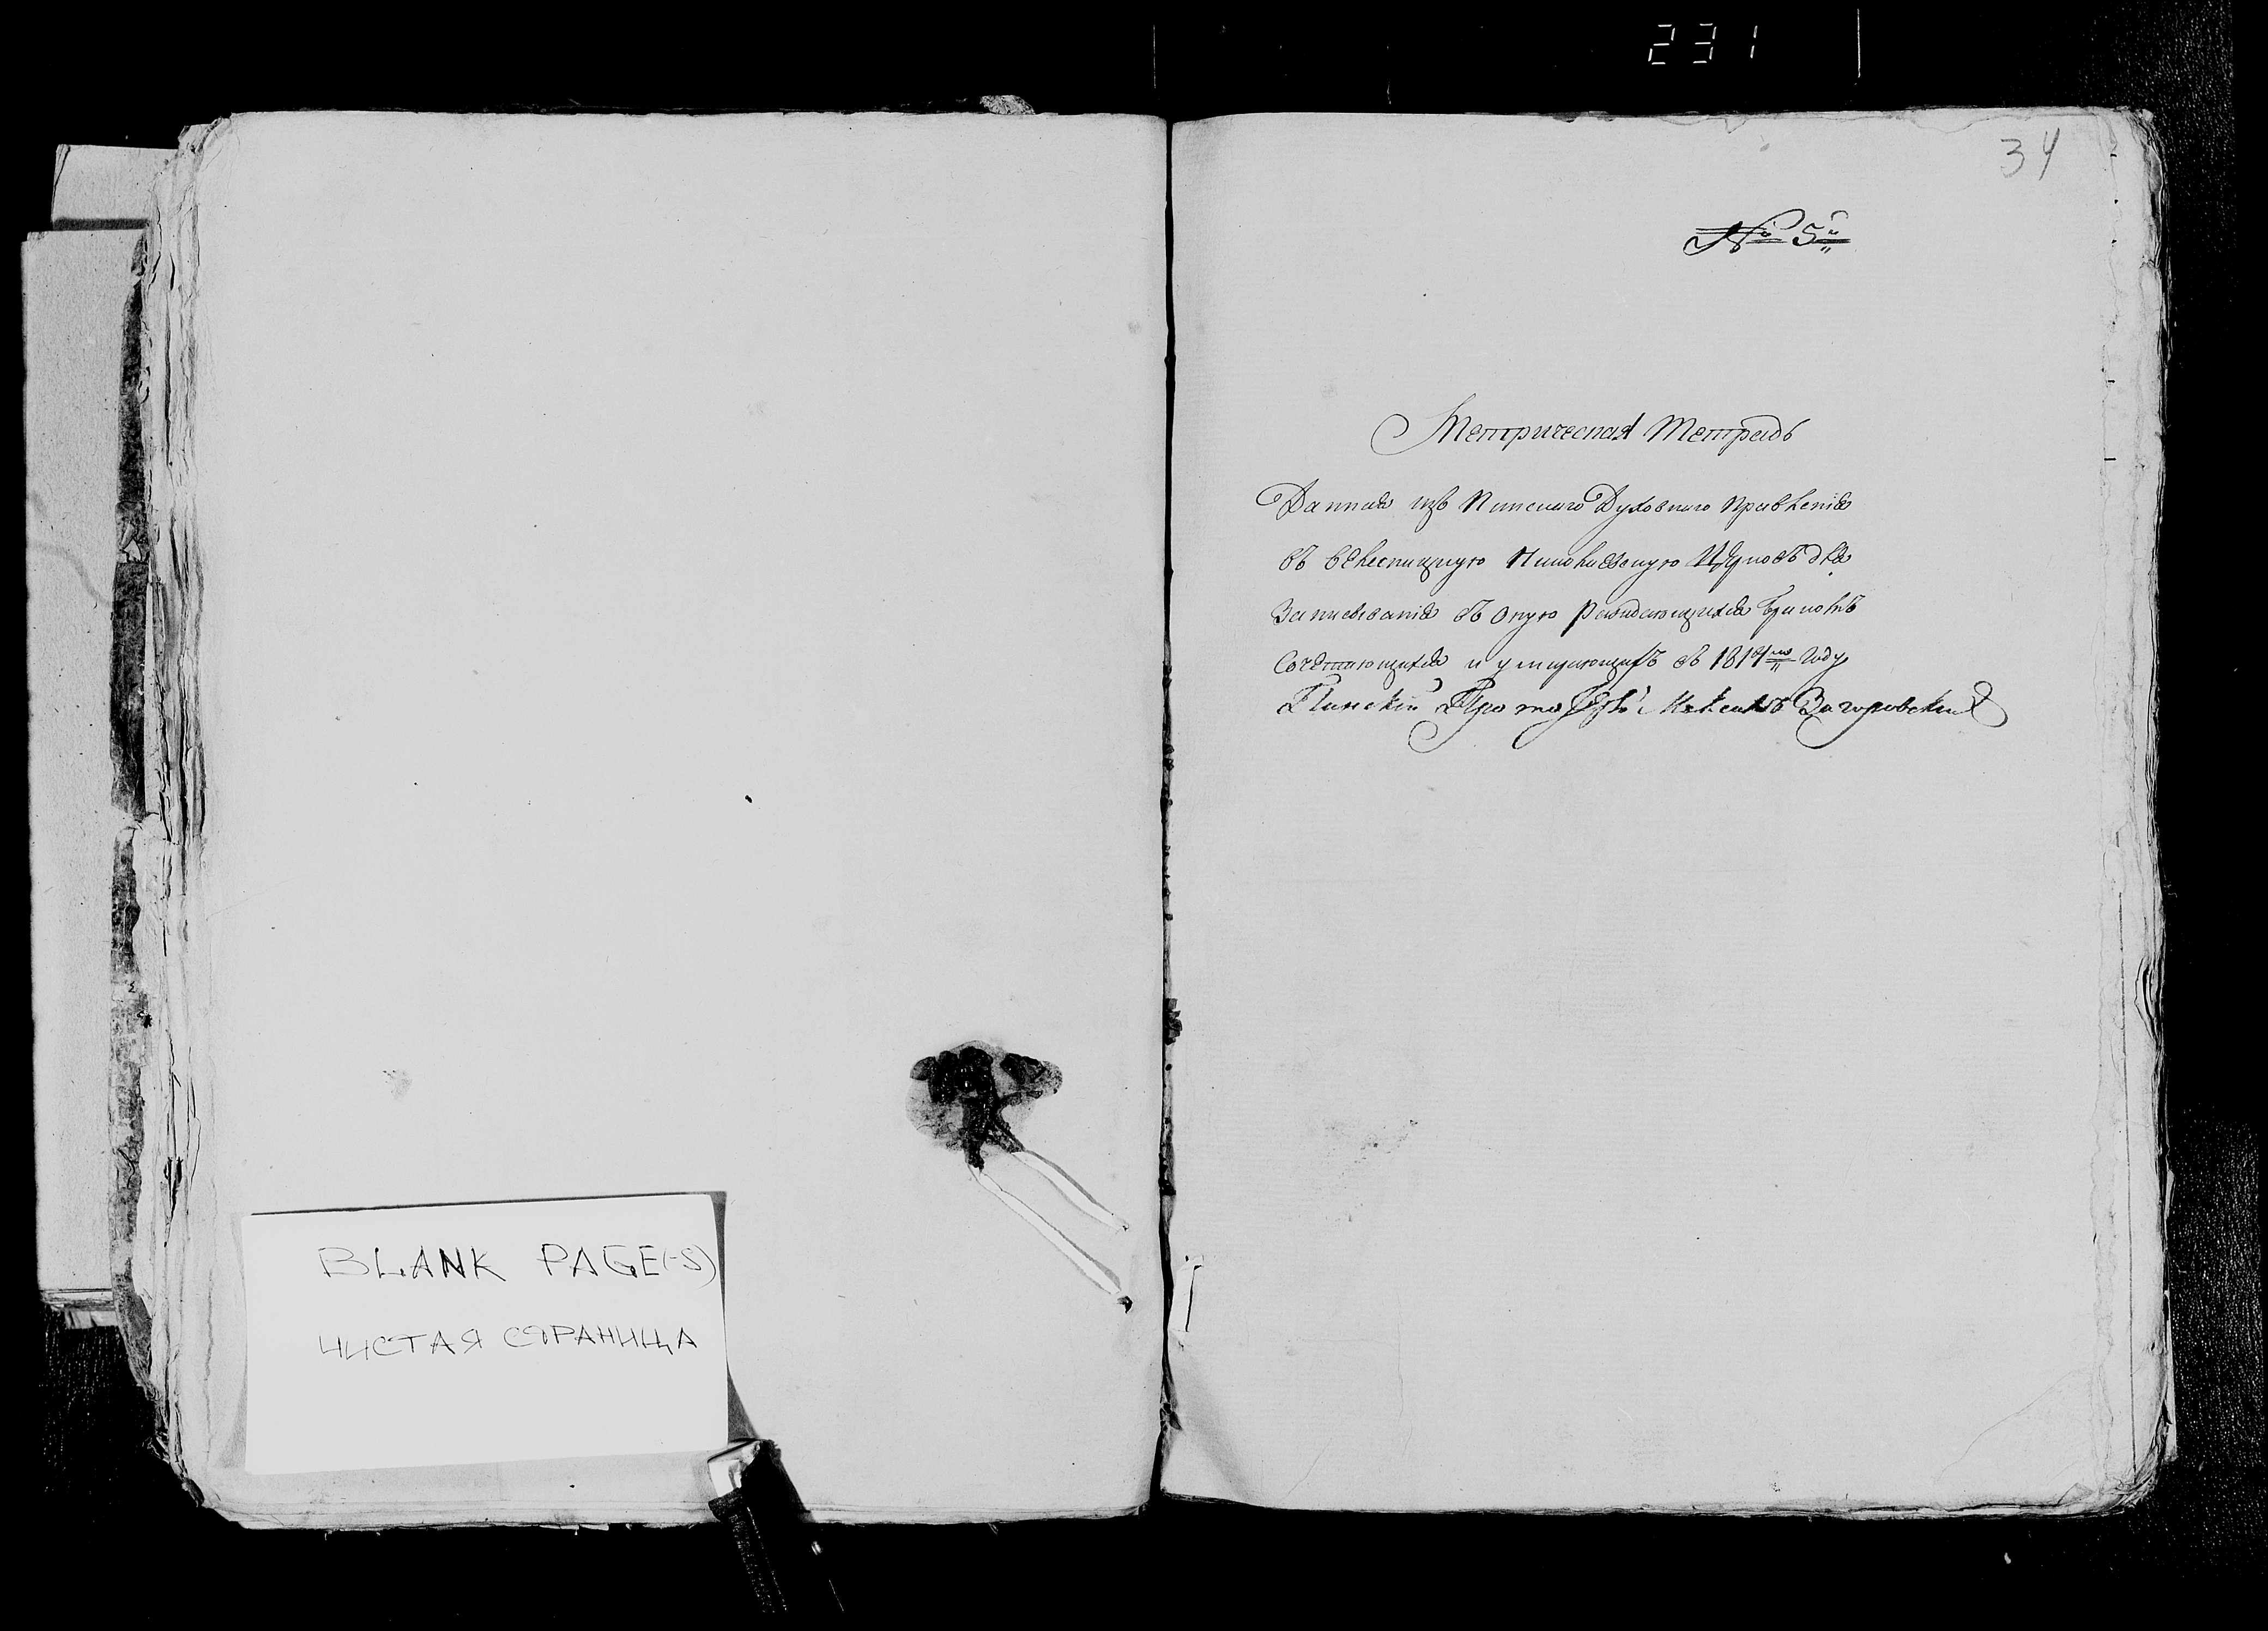 231
34
№ 5й
Метрическая Тетрадь
Данная изъ Пинского Духовного Правленія
въ Велесницкую Церковь для
Записыванія въ оную раждающихся бракомъ
Сочетающихся и умирающихъ въ 1814мъ году
Пинскій Протоіерей Заіоровскій
BLANK PAGE(-S)
ЧИСТАЯ СТРАНИЦА